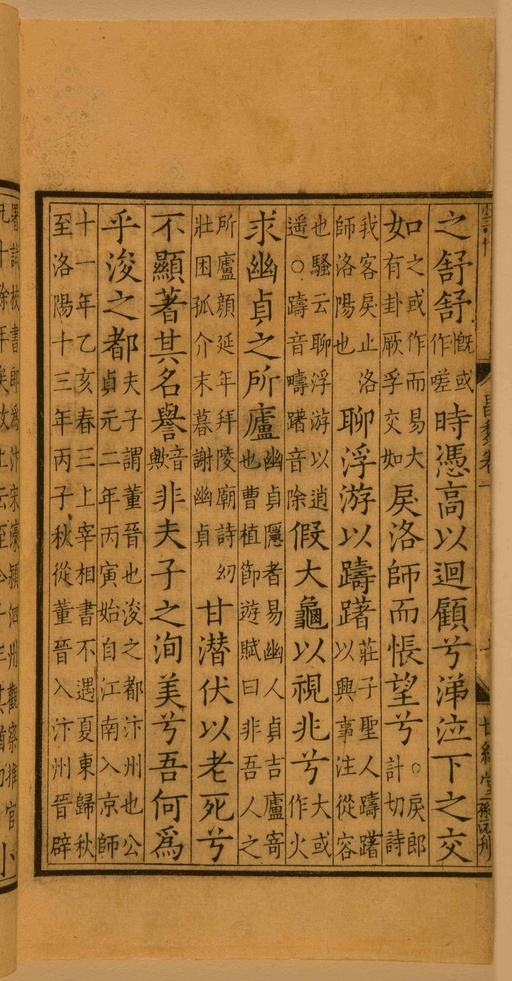 之舒舒慨或作嗟時憑高以迴顧兮涕泣下之交
如之或作而易大有卦厥孚交如戾洛師而悵望兮○戾郎計切詩
我客戾止洛師洛陽也聊浮游以躊躇莊子聖人躊躇以興事注從容
也騷云聊浮游以逍遥○躊音疇躇音除假大龜以視兆兮大或作火
求幽貞之所廬幽貞隱者易幽人貞吉廬寄也曹植節遊賦曰非吾人之
所廬顏延年拜陵廟詩幼壯困孤介末暮謝幽貞甘潛伏以老死兮
不顯著其名譽音歟非夫子之洵美兮吾何為
乎浚之都夫子謂董晉也浚之都汴州也公貞元二年丙寅始自江南入京師
十一年乙亥春三上宰相書不遇夏東歸秋至洛陽十三年丙子秋從董晉入汴州晉辟